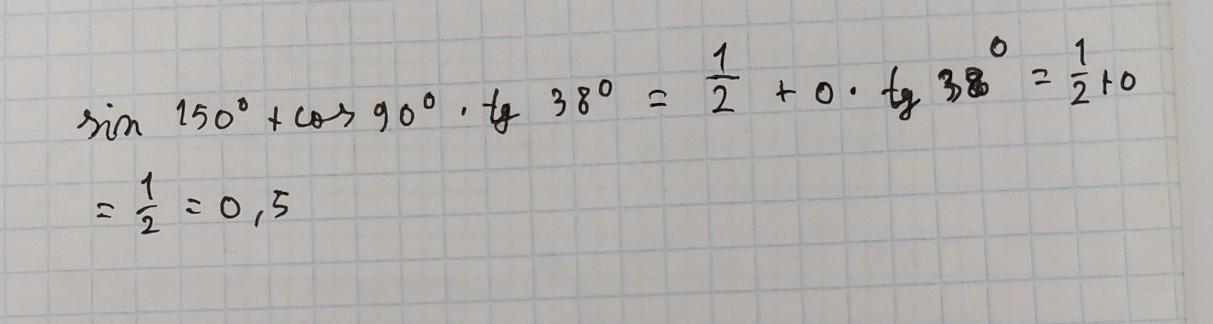 sin 150° + cos 90° · tg 38° = 1/2 + 0 · tg 38° = 1/2 + 0
= 1/2 = 0,5